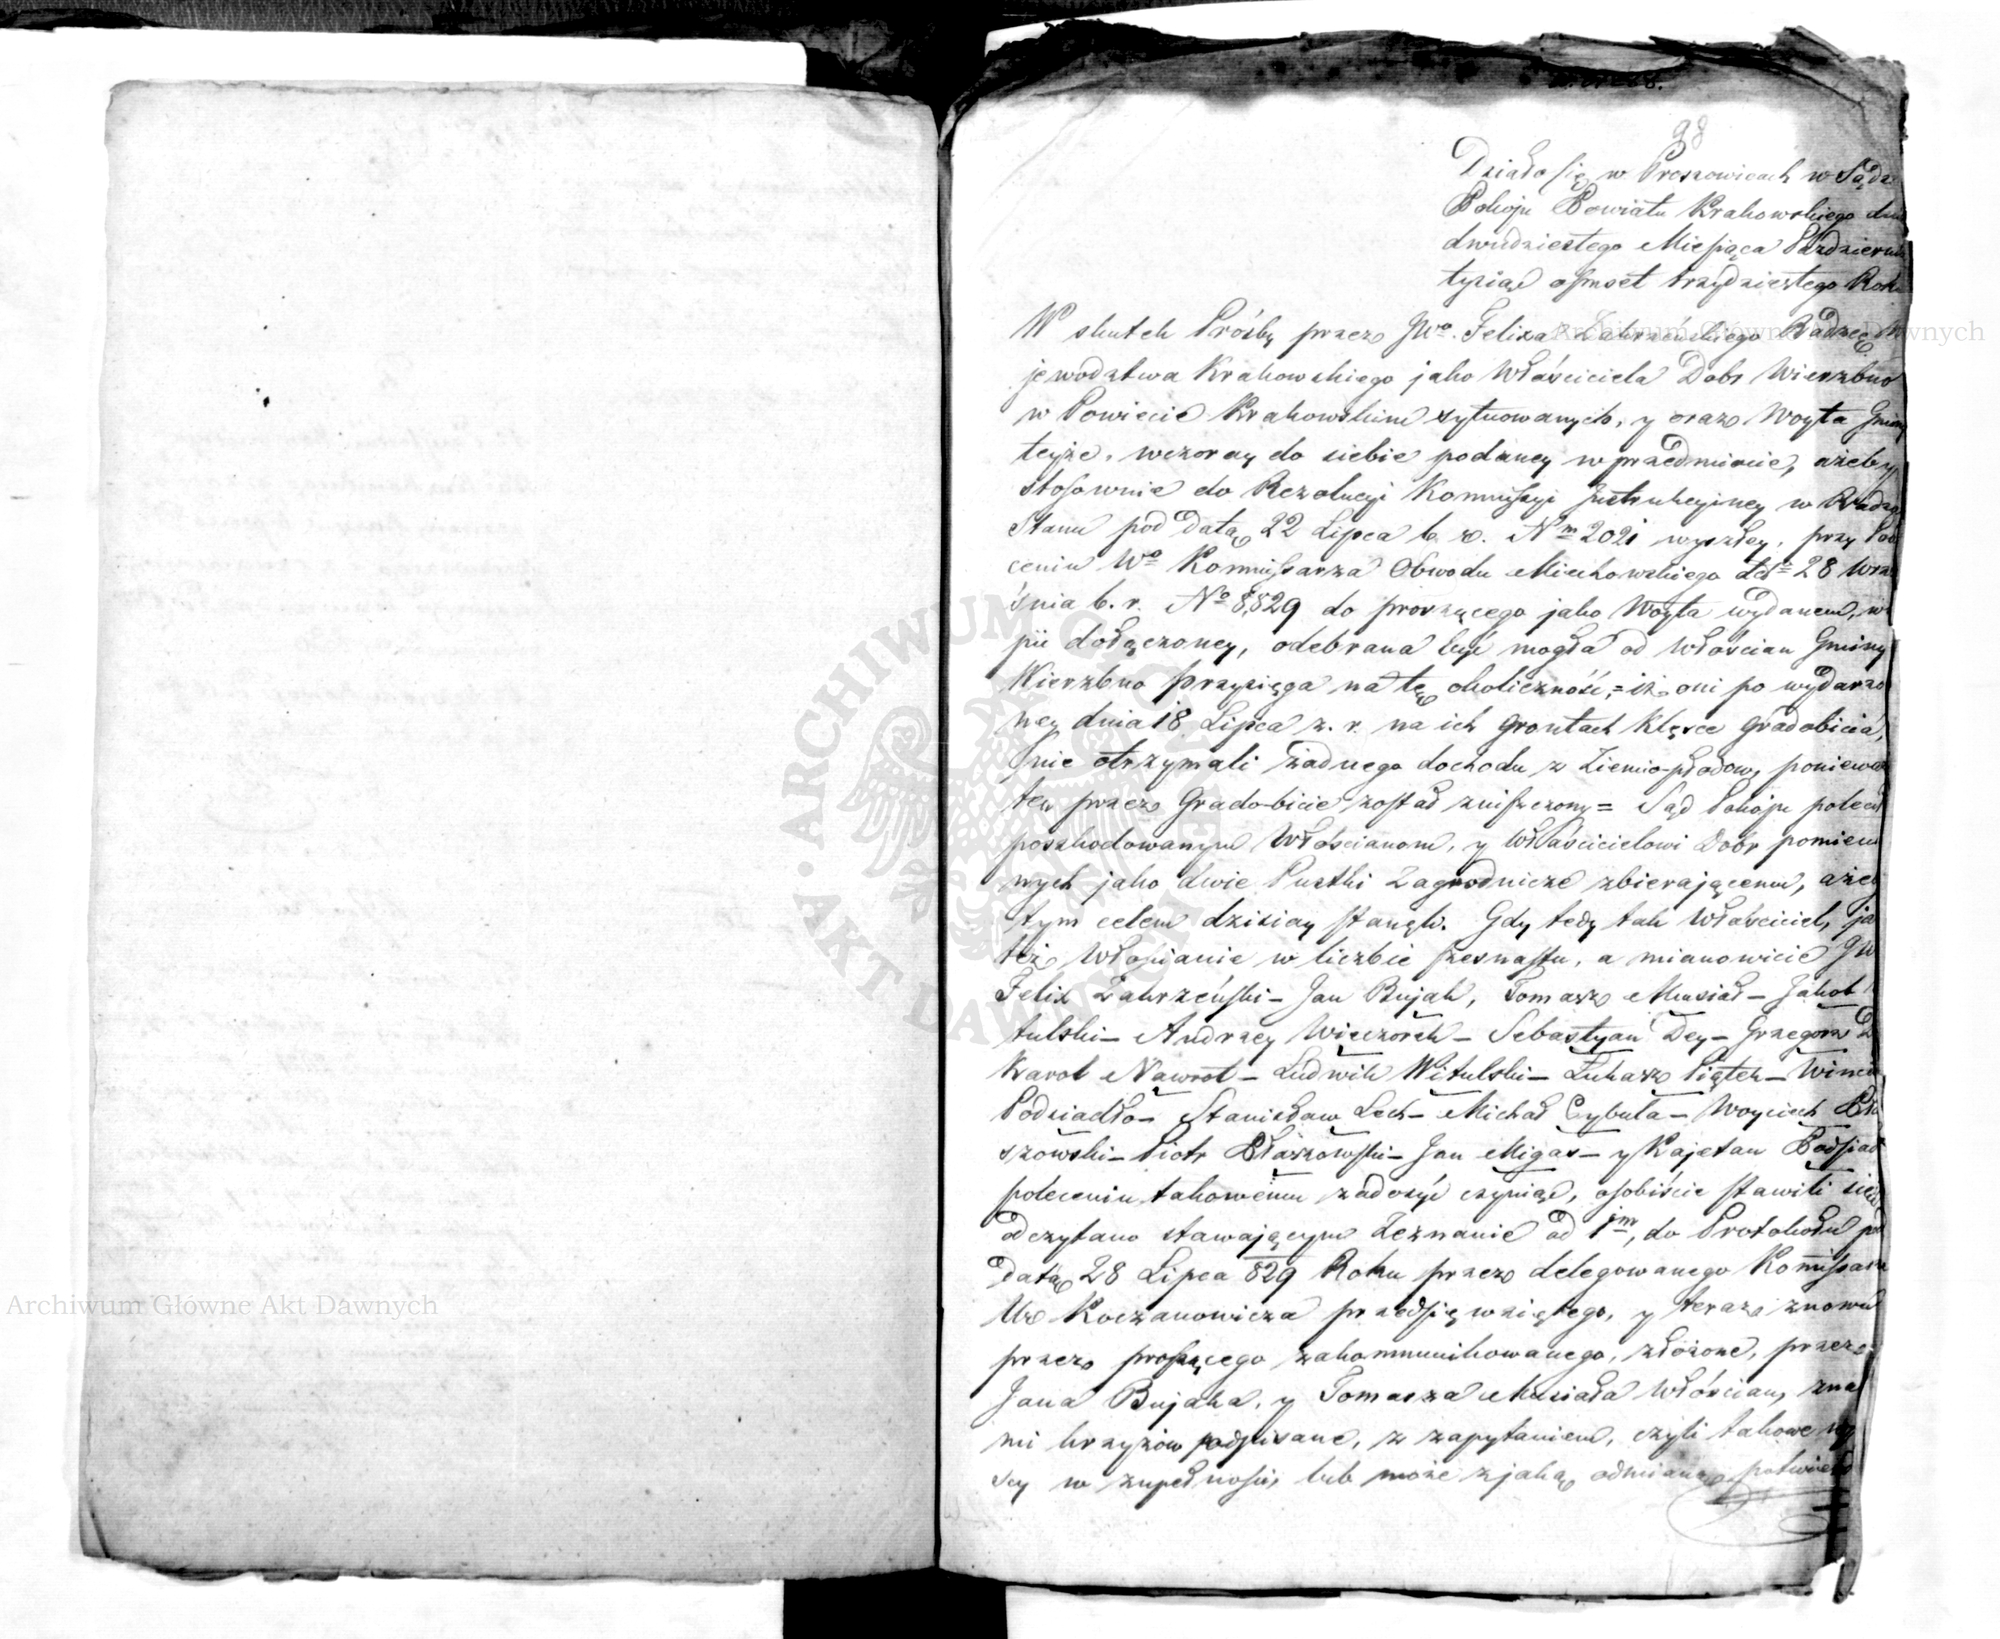 98
Działo się w Proszowicach w Sądzie
Pokoju Powiatu Krakowskiego dnia
dwudziestego Miesiąca Październi
tysiąc ośmset trzydziestego Roku
W skutek Prośby przez JWo. Felixa Zakrzeńskiego Radzcę W
jewodztwa Krakowskiego jako Właściciela Dobr Wierzbno
w Powiecie Krakowskim sytuowanych, y oraz Woyta Gminy
teyże, wczoray do siebie podaney w przedmiocie, ażeby
stosownie do Rezolucyi Kommissyi Instrukcyiney w Radzie
Stanu pod datą 22 Lipca b. r. Nm 2021 wyszłey, przy
ceniu Wo Kommissarza Obwodu Miechowskiego dd 28 Wrze
śnia b. r. No 8,829 do proszącego jako Woyta wydanem, w
pii dołączoney, odebrana być mogła od Włościan Gminy
Wierzbno przysięga na tę okoliczność, = iż oni po wydarzo
ney dnia 18 Lipca z. r. na ich grontach Klęsce Gradobicia,
nie otrzymali żadnego dochodu z Ziemio-płodow, poniewa
ten przez Grado-bicie został zniszczony = Sąd Pokoju polecił
poszkodowanym Włościanom, y Właścicielowi Dobr pomien
nych jako dwie Pustki Zagrodnicze zbierającemu, ażeb
tym celem dzisiay stanęli. Gdy tedy tak Właściciel, ja
też Włościanie w liczbie szesnastu, a mianowicie JW
Felix Zakrzeński – Jan Bujak, Tomasz Musiał – Jakob
tulski – Andrzey Wieczorek – Sebastyan Dey – Grzegorz D
Karol Nawrot – Ludwik Witulski – Łukasz Piątek – Wince
Podsiadło – Stanisław Lech – Michał Cybula – Woyciech Bła
szowski – Piotr Błaszowski – Jan Migas – y Kajetan Podsiad
poleceniu takowemu zadosyć czyniąc, osobiście stawili się
odczytano stawającym Zeznanie od 1m, do Protokołu pod
datą 28 Lipca 829 Roku przez delegowanego Komissarza
Ur Koczanowicza przedsięwziętego, y teraz znowu
przez proszącego zakommunikowanego, złożone, przez
Jana Bujaka, y Tomasza Musiała Włościan, zna
mi krzyżów podpisane, z zapytaniem, czyli takowe
w zupełności, lub może z jaką odmianą potwierd
Archiwum Główne Akt Dawnych
Archiwum Główne Akt Dawnych
ARCHIWUM GŁÓWNE
AKT DAWNYCH